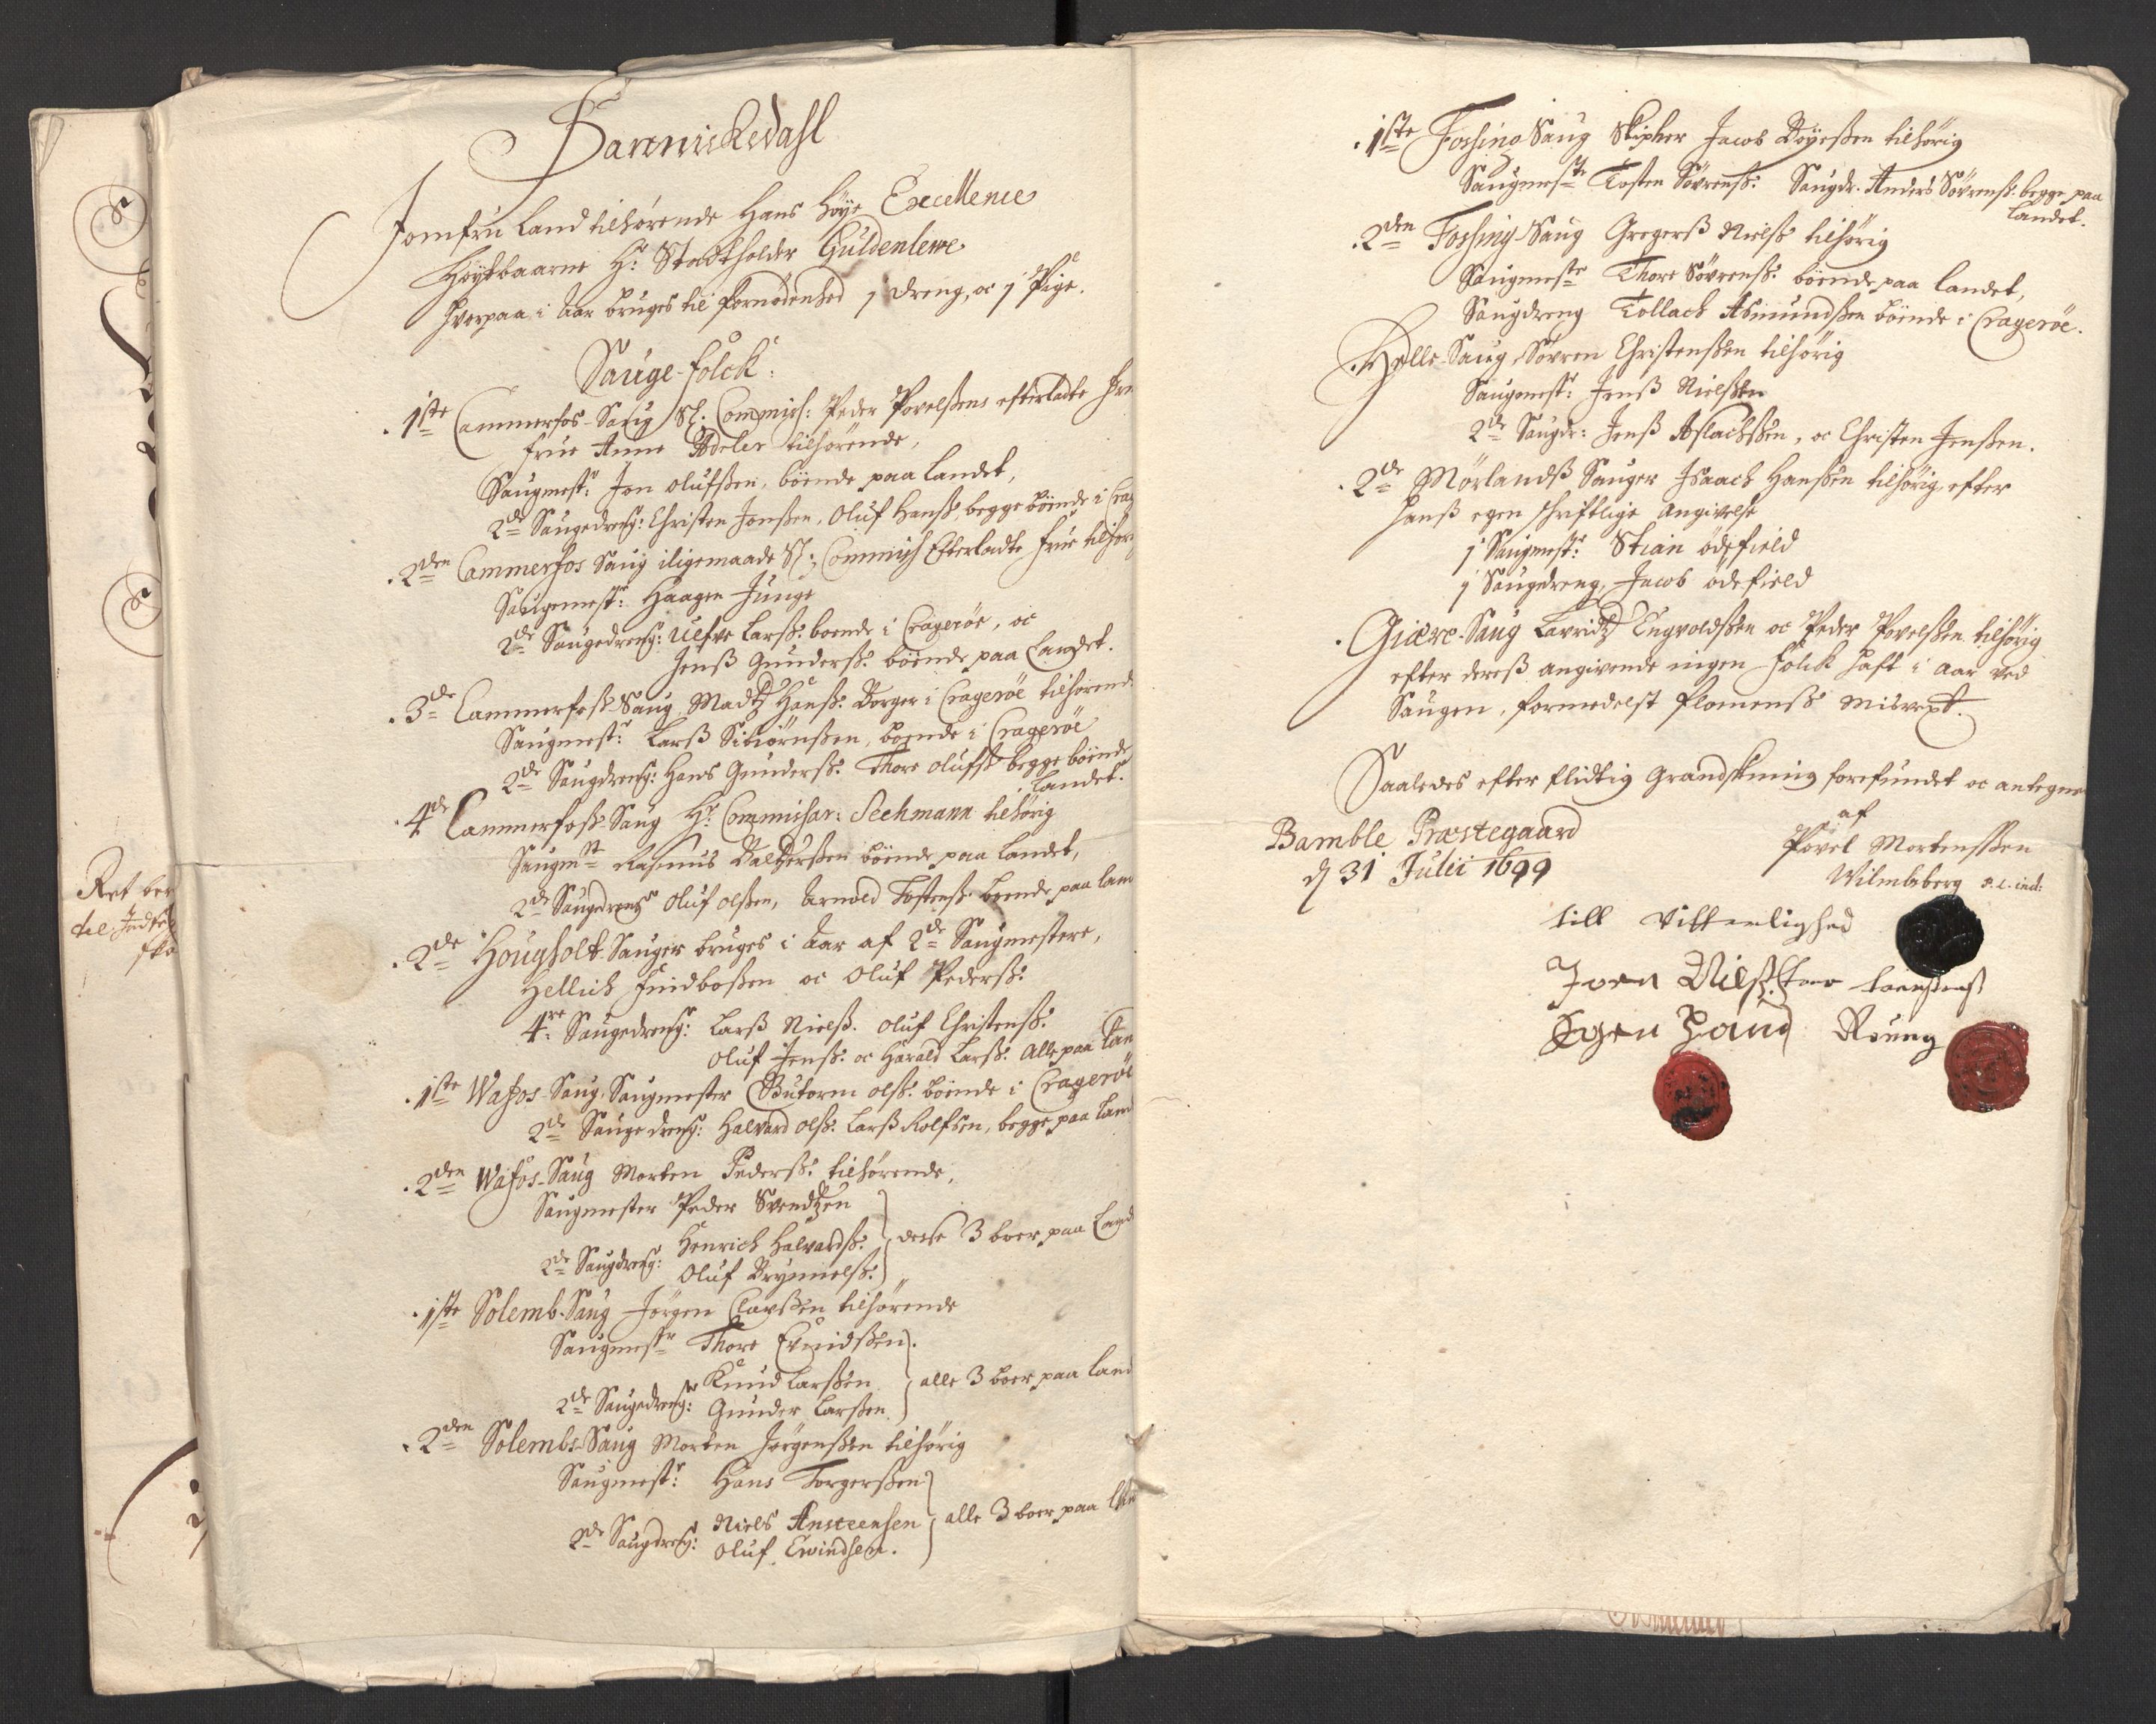 Sannickedahl
Jomfru Land tilhørende Hans Høye Excellence
Høytbaarne Hr: Stadtholder Güldenlewe
hvorpaa i Aar bruges til fornødenhed 1 dreng, oc 1 Pige.
Sauge-folck:
1ste Cammerfos-Saug Sl: Commiss: Peder Povelßens efterladte
frue Anne Adeler tilhørende,
Saugmestr: Jon olufßen, böende paa landet,
2de Saugedreng: Christen Jonßen, Oluf Hanß. begge böende i Crag
2den Cammerfos Saug iligemaade Sl: Commiss Efterladte frue tilhör
Saugemestr: Haagen Junge
2de Saugedreng: Ulfve Larß: boende i Cragerøe, oc
Jenß Gunderß: böende paa Landet.
3de Cammerfoss Saug Madtz Hanß: Borger i Cragerøe tilhørend
Saugmestr: Larß Sibiørnßen, böende i Cragerøe
2de Saugdreng: Hans Gunderß: Thore olufß: begge böende
Landet.
4de Cammerfoss Saug Hr: Commissar: Seehmann tilhörig
Saugmstr Rasmus Baltzerßen böende paa landet,
2de Saugdreng Oluf olßen, Arnold Tostenß: boende paa lan
2de Hougholt-Sauger bruges i Aar af 2de Saugmestere,
Hellich Findboßen oc Oluf Pederß:
4re Saugedreng: Larß Nielß. Oluf Christenß:
Oluf Jenß: oc Harald Larß: Alle paa lan
1ste Wafos-Saug, Saugmester Gutorm olß: böende i Cragerøe
2de Saugedreng: Halvard olß: Larß Rolfsen, begge paa land
2den Wafos-Saug Morten Pederß: tilhørende,
Saugmester Peder Svendtzen
2de Saugdreng: Henrich Halvardß: desse 3 boer paa Land
Oluf Brynnelß:
1ste Solemb-Saug Jørgen Clavßen tilhørende
Saugmestr Thore Evindßen.
2de Saugedreng: Knud Larßen alle 3 boer paa land
Gunder Larßen
2den Solembs-Saug Morten Jørgenßen tilhørig
Saugmestr: Hans Torgerßen
2de Saugdreng: Niels Ansteensen alle 3 boer paa
Oluf Ewindsen.
1ste Fossing Saug Skipher Jacob Böyeßen tilhørig
Saugmestr Tosten Sövrenß: Saugdr. Anders Sövrenß: begge paa
landet.
2den Fossing Saug Gregerß Nielß tilhørig
Saugmestr Thore Sövrenß: böende paa landet,
Saugdreng Tollach Asmundßen böende i Cragerøe.
Helle-Saug, Sövren Christenßen tilhørig
Saugmestr: Jenß Nielßen
2de Saugdr: Jenß Aslachßen, oc Christen Jenßen.
2de Mørlandß Sauger Isaach Hanßen tilhørig, efter
hanß egen skriftlige Angivelse
1 Saugmestr: Stian ödefield
1 Saugdreng, Jacob ödefield
Giære-Saug Lavridtz Engvoldßen oc Peder Povelßen tilhørig
efter dereß angivende ingen folck haft i Aar ved
Saugen, formedelst flomenß misvext.
Saaledes efter flidtig Grandskning forefundet oc antegne
af
Bamble Præstegaard
d 31 Julii 1699
Povel Mortenßen
Wilmbsberg
till vitterlighed
Joen Nielß.
Egen Haand